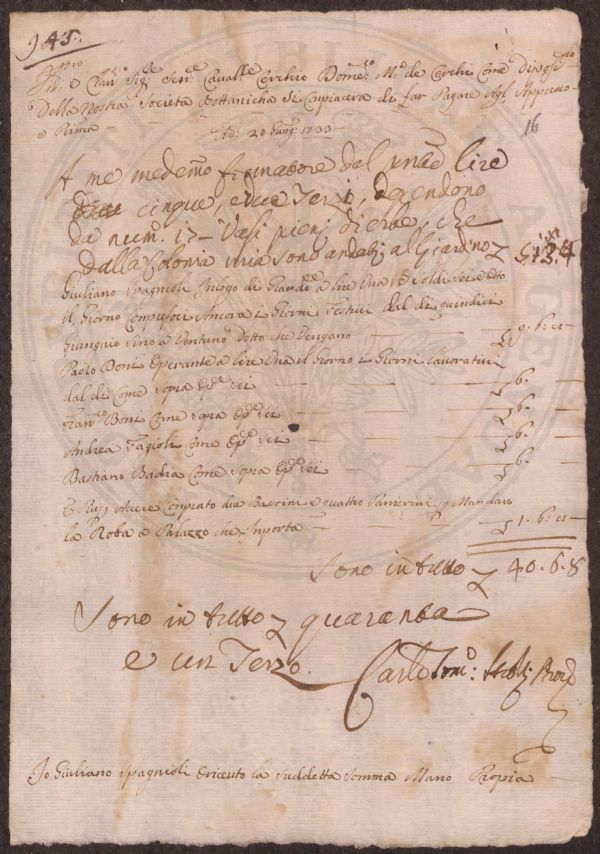 945.
Ill.mo e Clar.mo Sig.re Sen.re Cavall.re Cerchio Dom.co M.a de Cerchi Come Depos.rio
Della Nostra Societa Bottanicha Si Conpiacera di far Pagare Agl Appiesso
e Prima
Ad: 20 Giung.o 1739
16
A me medemo firmatore dal
lire
cinque, e due Terzi, dependono
da num. 17 Vasi pieni di erbe, che
dalla Colonia mia sono andati al Giardino
Giuliano Spagnioli In logo di Giard.re a lire Una e Soldi Sei e otto
il Giorno Compresoci Ancora i Giorni Festivi dal di quindici
giungnio sino a Ventuno detto che Vengano
Paolo Boni Operante a lire Una il Giorno i Giorni lavorativi
dal di Come sopra Op.e Sei 6.
Fran.co Boni Come sopra Op.e Sei 6.
Andrea Fagioli Come Op.e Sei 6.
Bastiano Badia Come sopra Op.e Sei 6.
E Avere Conprato due Bascini e quattro Panierini p Mandare
la Roba a Palazzo che Inporta 1. 6.
Sono in tutto 40. 6. 8
Sono in tutto quaranta
e un Terzo.
Io Giuliano Spagnioli o riceuto la suddetta Somma Mano Propia